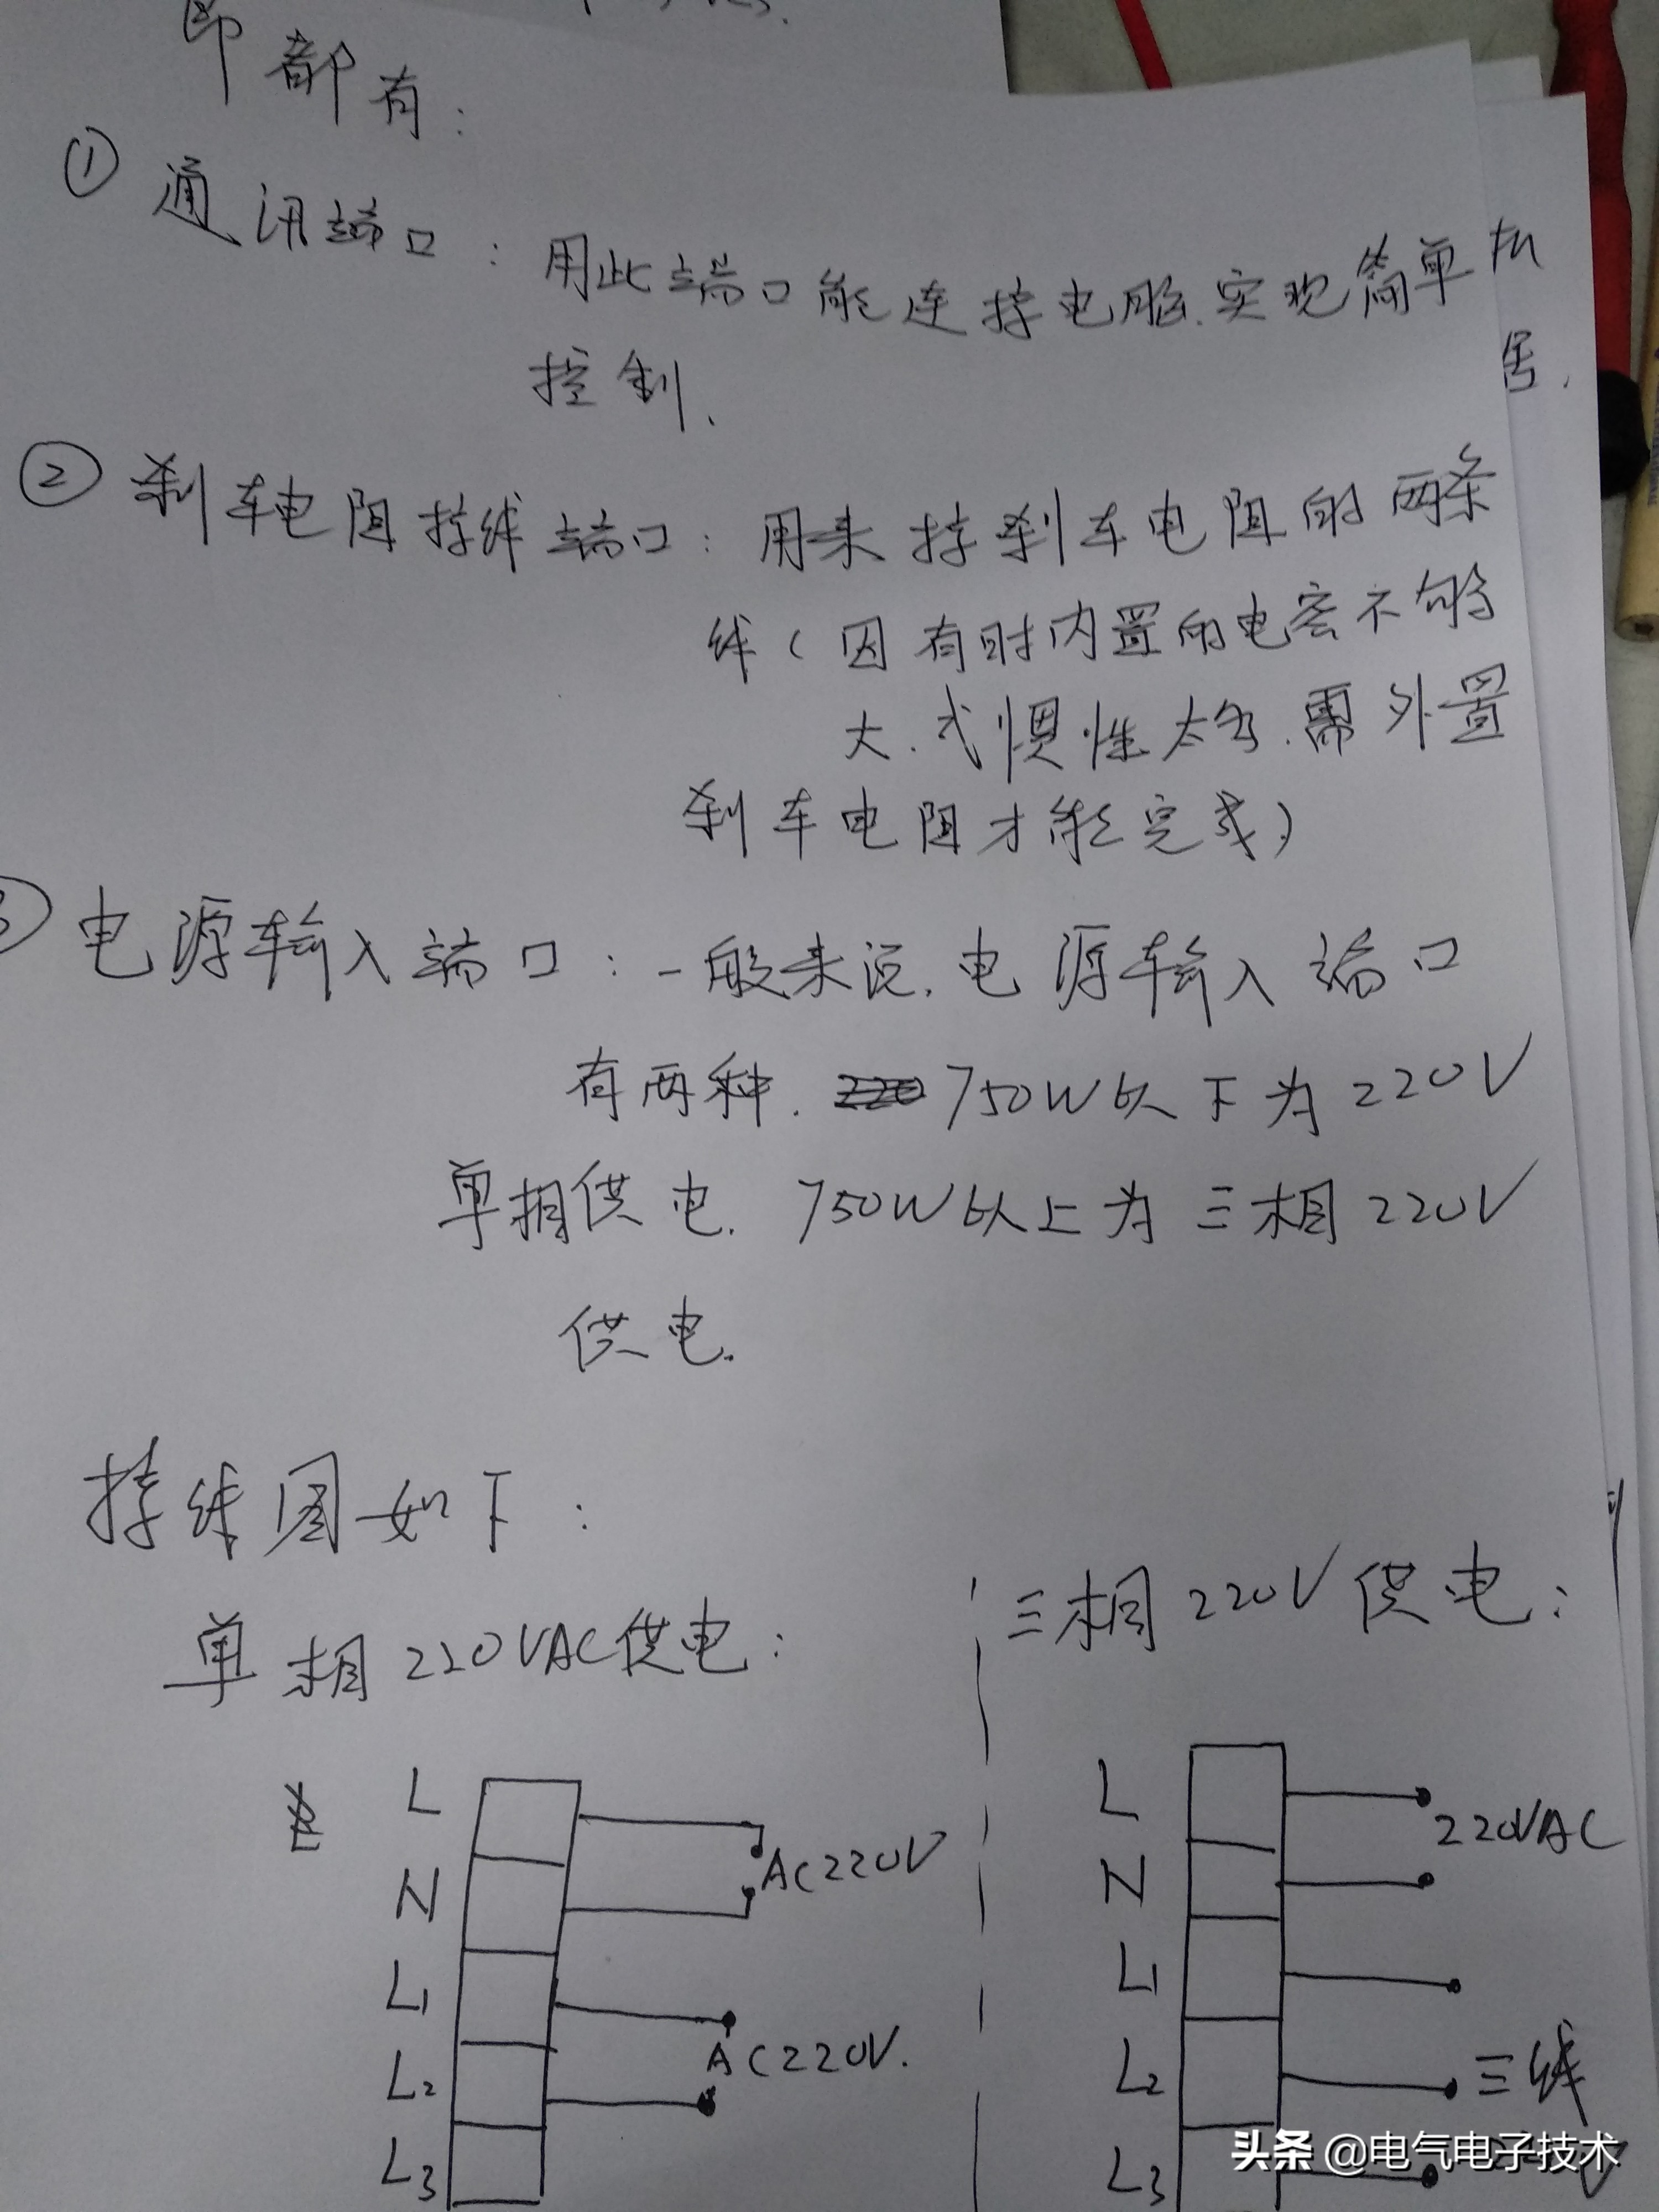 即都有：
① 通讯端口：用此端口能连接电脑.实现简单
控制.
② 刹车电阻接线端口：用来接刹车电阻的两条
线（因有时内置的电容不够
大.或惯性太大.需外置
刹车电阻才能完成）
电源输入端口：一般来说.电源输入端口
有两种.750W以下为220V
单相供电.750W以上为三相220V
供电.
接线图如下：
单相220VAC供电：
三相220V供电：
L
N
L1
L2
L3
AC220V
AC220V.
L
N
L1
L2
L3
220VAC
三线
头条 @电气电子技术